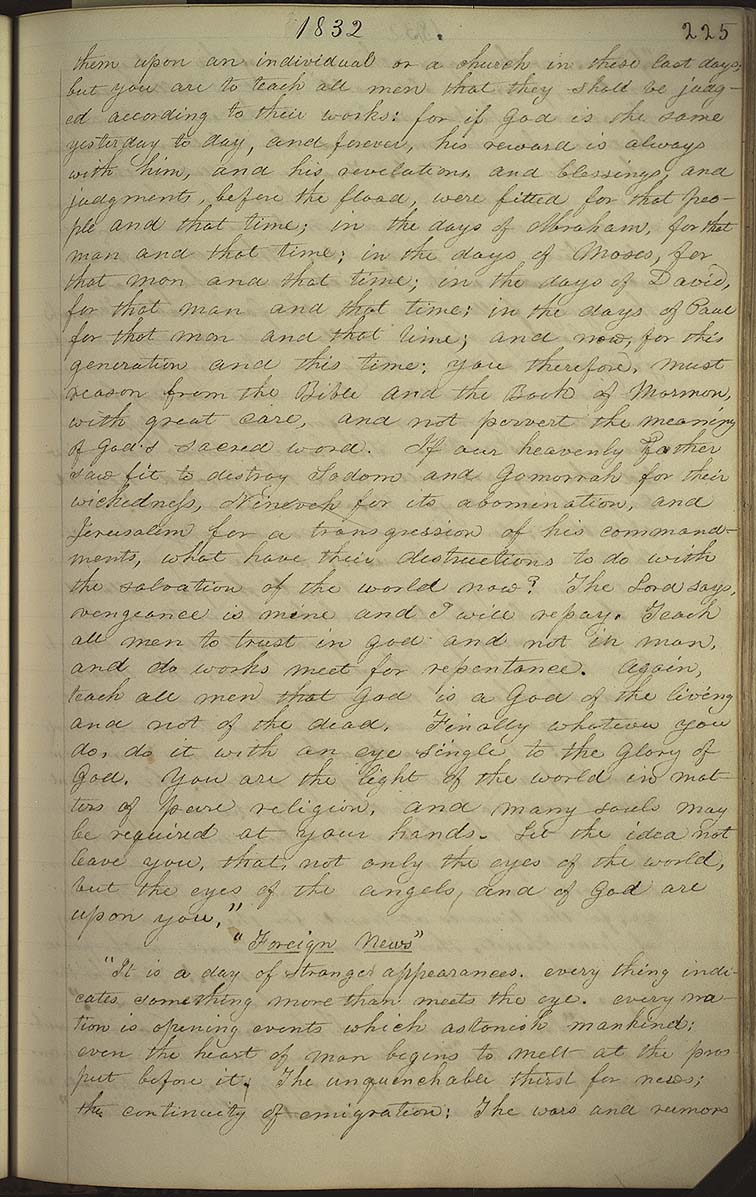 1832 . 225
them upon an individual or a church in these last days;
but you are to teach all men that they shall be judg-
ed according to their works: for if God is the same
yesterday to day, and forever, his reward is always
with him, and his revelations and blessings, and
judgments, before the flood, were fitted for that peo-
ple and that time; in the days of Abraham, for that
man and that time; in the days of Moses, for
that man and that time; in the days of David,
for that man and that time; in the days of Paul
for that man and that time; and now, for this
generation and this time; you therefore, must
reason from the Bible and the Book of Mormon,
with great care, and not pervert the meaning
of God's sacred word. If our heavenly Father
saw fit to destroy Sodom and Gomorrah for their
wickedness, Nineveh for its abomination, and
Jerusalem for a transgression of his command-
ments, what have their destructions to do with
the salvation of the world now? The Lord says,
vengeance is mine and I will repay. Teach
all men to trust in god and not in man,
and do works meet for repentance. Again,
teach all men that God is a God of the living
and not of the dead. Finally whatever you
do, do it with an eye single to the glory of
God. You are the light of the world in mat-
ters of pure religion, and many souls may
be required at your hands. Let the idea not
leave you, that, not only the eyes of the world,
but the eyes of the angels, and of God are
upon you."
"Foreign News"
"It is a day of strange appearances. every thing indi-
cates something more than meets the eye. every na-
tion is opening events which astonish mankind:
even the heart of man begins to melt at the pros
pect before it; The unquenchable thirst for news;
the continuity of emigration; The wars and rumors